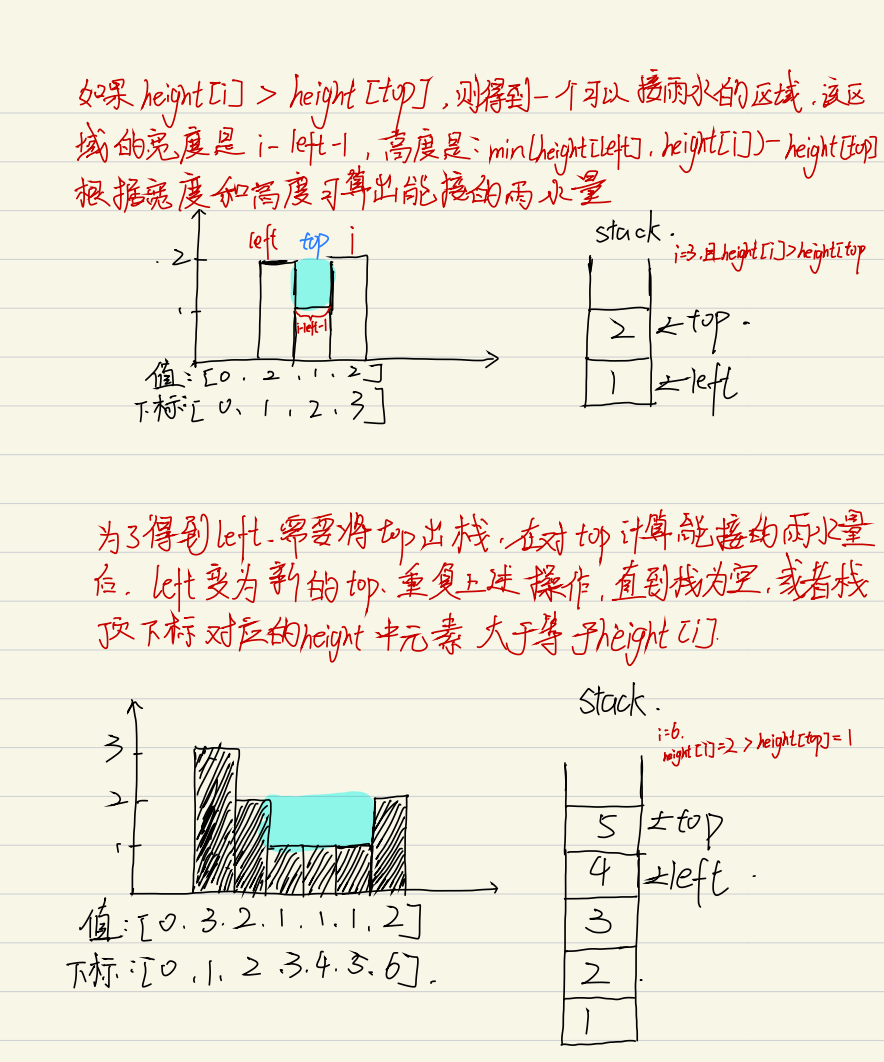 如果height[i] > height[top],则得到一个可以接雨水的区域.该区
域的宽度是 i-left-1,高度是:min(height[left],height[i])-height[top]
根据宽度和高度可算出能接的雨水量
left top i
2
1
i-left-1
值:[0.2.1.2]
下标:[0.1.2.3]
stack.
i=3.且height[i]>height[top
2 ←top.
1 ←left
为了得到left.需要将top出栈.在对top计算能接的雨水量
后.left变为新的top.重复上述操作,直到栈为空.或者栈
顶下标对应的height中元素大于等于height[i].
3
2
1
值:[0.3.2.1.1.1.2]
下标:[0.1.2.3.4.5.6].
stack.
i=6.
height[i]=2>height[top]=1
5 ←top
4 ←left.
3
2
1